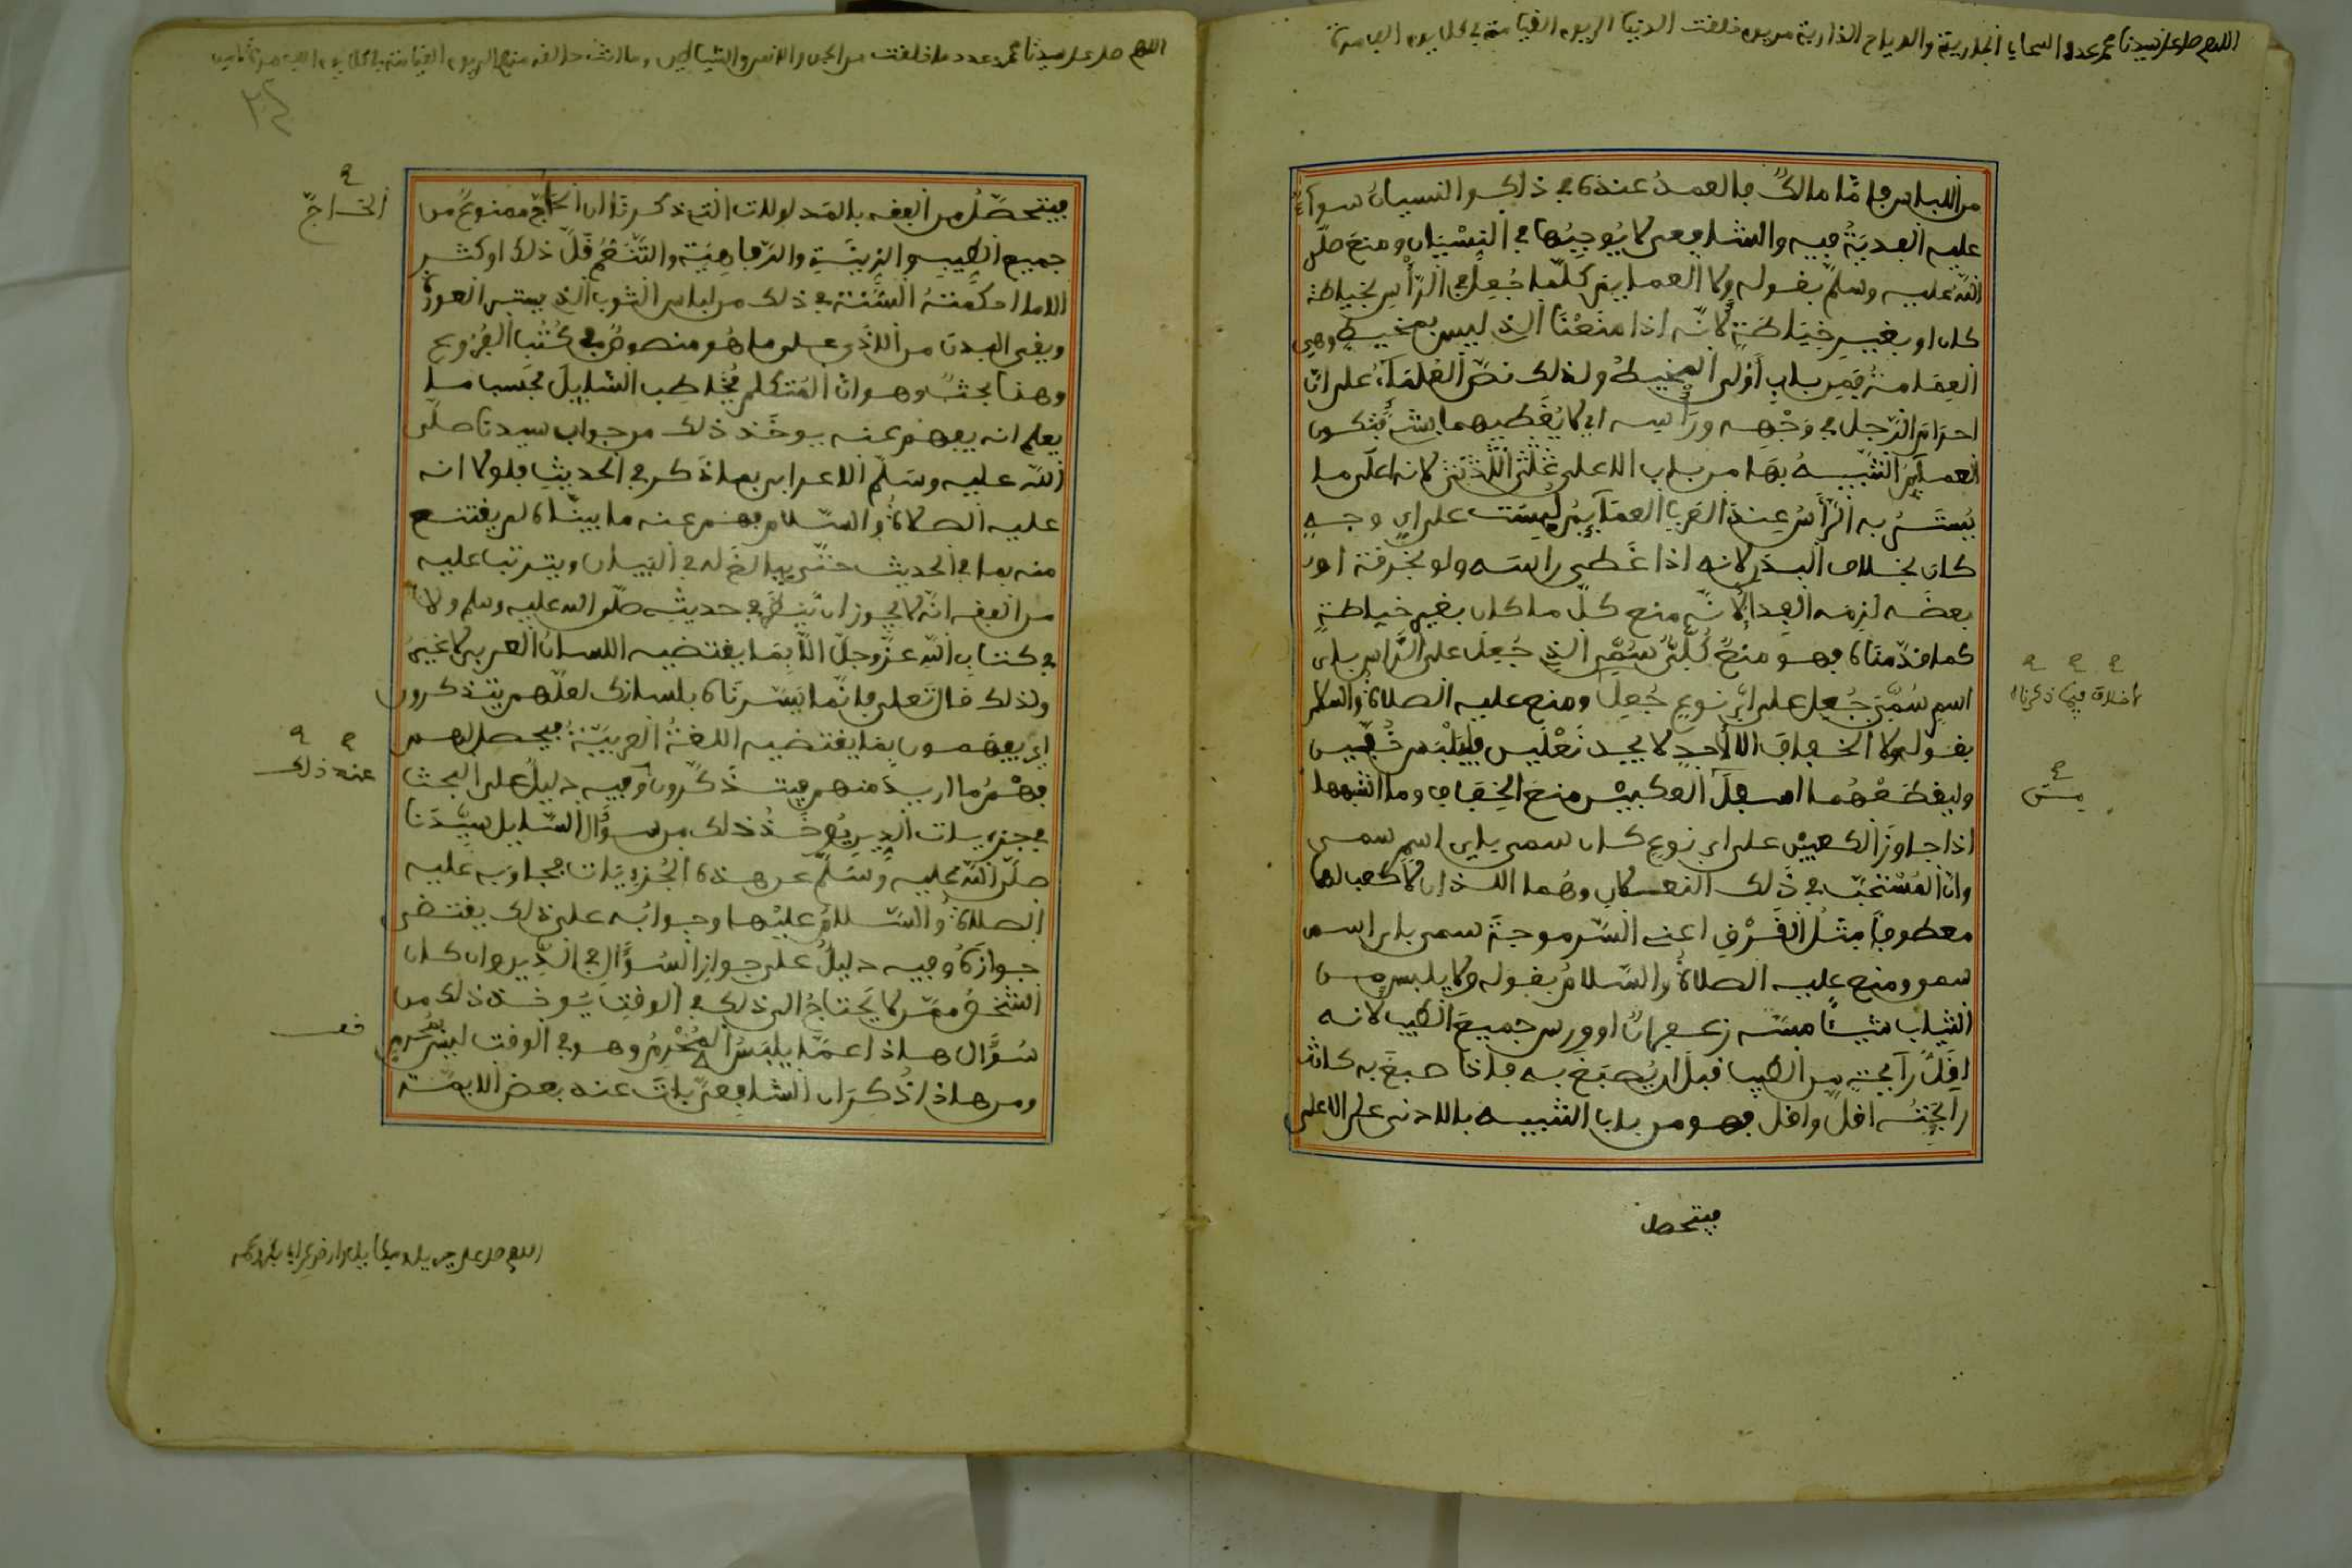 اللهم صل على سيدنا محمد عدد السحاب الجارية والرياح الذارية من يوم خلقت الدنيا الى يوم القيامة في كل يوم الف مرة
من اللباس فاما مالك فالعمد عنده في ذلك والنسيان سواء
عليه الفدية فيه والشافعى لا يوجبها في النسيان ومنع صلى
الله عليه وسلم بقوله ولا العمايم كلما جعل في الراس بخياطة
كان او بغير خياطة لانه اذا منعنا الذى ليس بمخيط وهي
العمامة فمن باب اولى المخيط ولذلك نص العلماء على ان
احرام الرجل في وجهه وراسه اي لا يغطيهما بشيء فتكون
العمايم التنبيه بها من باب الاعلى لانه اعلى ما
يستر به الراس عند العرب العمايم ليست على اي وجه
كان بخلاف البدن لانه اذا غطى راسه ولو بخرقة او
بعضه لزمه الفدا لانه منع كل ما كان بغير خياطة
كما قدمناه فهو منع كلى سمى الذي جعل على الراس باى
اسم سمى جعل على اي نوع جعل ومنع عليه الصلاة والسلام
بقوله ولا الخفاف الا لاحد لا يجد نعلين فليلبس خفين
وليقطعهما اسفل الكعبين منع الخفاف وما اشبهها
اذا جاوز الكعبين على اي نوع كان سمى باي اسم سمى
وان المستحب في ذلك النعلان وهما اللذان لا كعب لهما
معطوفا مثل القرق اعني السرموجة سمى باي اسم
سمو ومنع عليه الصلاة والسلام بقوله ولا يلبس من
الثياب شيئا مسه زعفران او ورس جميع الطيب لانه
اقل رائحة من الطيب قبل ان يصبغ به فاذا صبغ به كانت
رائحته اقل واقل فهو من باب التنبيه بالادنى على الاعلى
بخلاف فيما ذكرناه
فيتحصل
اللهم صل على سيدنا محمد عدد ما خلقت من الجن والانس والشياطين
فيتحصل من الفقه بالمدلولات التي ذكرنا ان الحاج ممنوع من
جميع الطيب والزينة والرفاهية والتنعم قل ذلك او كثير
الا ما احكمته السنة في ذلك من لباس الثوب الذي يستر العورة
ويقى البدن من الاذى على ما هو منصوص في كتب الفروع
وهنا بحث وهو ان المتكلم يخاطب السايل بحسب ما
يعلم انه يفهم عنه يوخذ ذلك من جواب سيدنا صلى
الله عليه وسلم الاعرابي بما ذكر في الحديث فلولا انه
عليه الصلاة والسلام فهم عنه ما بيناه لم يقتنع
منه بما في الحديث حتى يبالغ له في البيان ويترتب عليه
من الفقه انه لا يجوز ان ينظر في حديثه صلى الله عليه وسلم ولا
في كتاب الله عز وجل الا بما يقتضيه اللسان العربي لا غير
ولذلك قال تعلى فانما يسرناه بلسانك لعلهم يتذكرون
اي يفهمون بما يقتضيه اللغة العربية فيحصل لهم
فهم ما اريد منهم فيتذكرون وفيه دليل على البحث
في جزييات الدين يوخذ ذلك من سؤال السايل سيدنا
صلى الله عليه وسلم عن هذه الجزييات مجاوبه عليه
الصلاة والسلام عليها وجوابه على ذلك يقتضى
جوازه وفيه دليل على جواز السؤال في الدين وان كان
الشخص ممن لا يحتاج الى ذلك في الوقت يوخذ ذلك من
سؤال هذا عما يلبس المحرم وهو في الوقت ليس بمحرم
ومن هذا ذكر ان الشافعى بات عنده بعض الايمة
عند ذلك